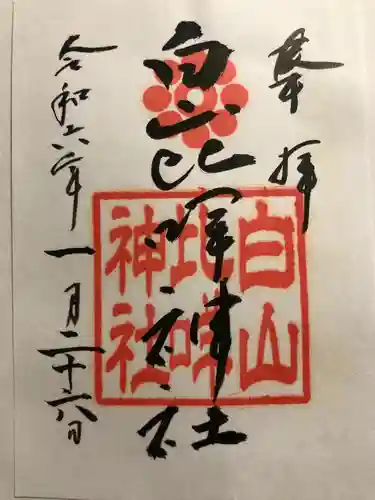 奉拝
白山比咩神社
白山
比咩
神社
令和六年一月二十六日